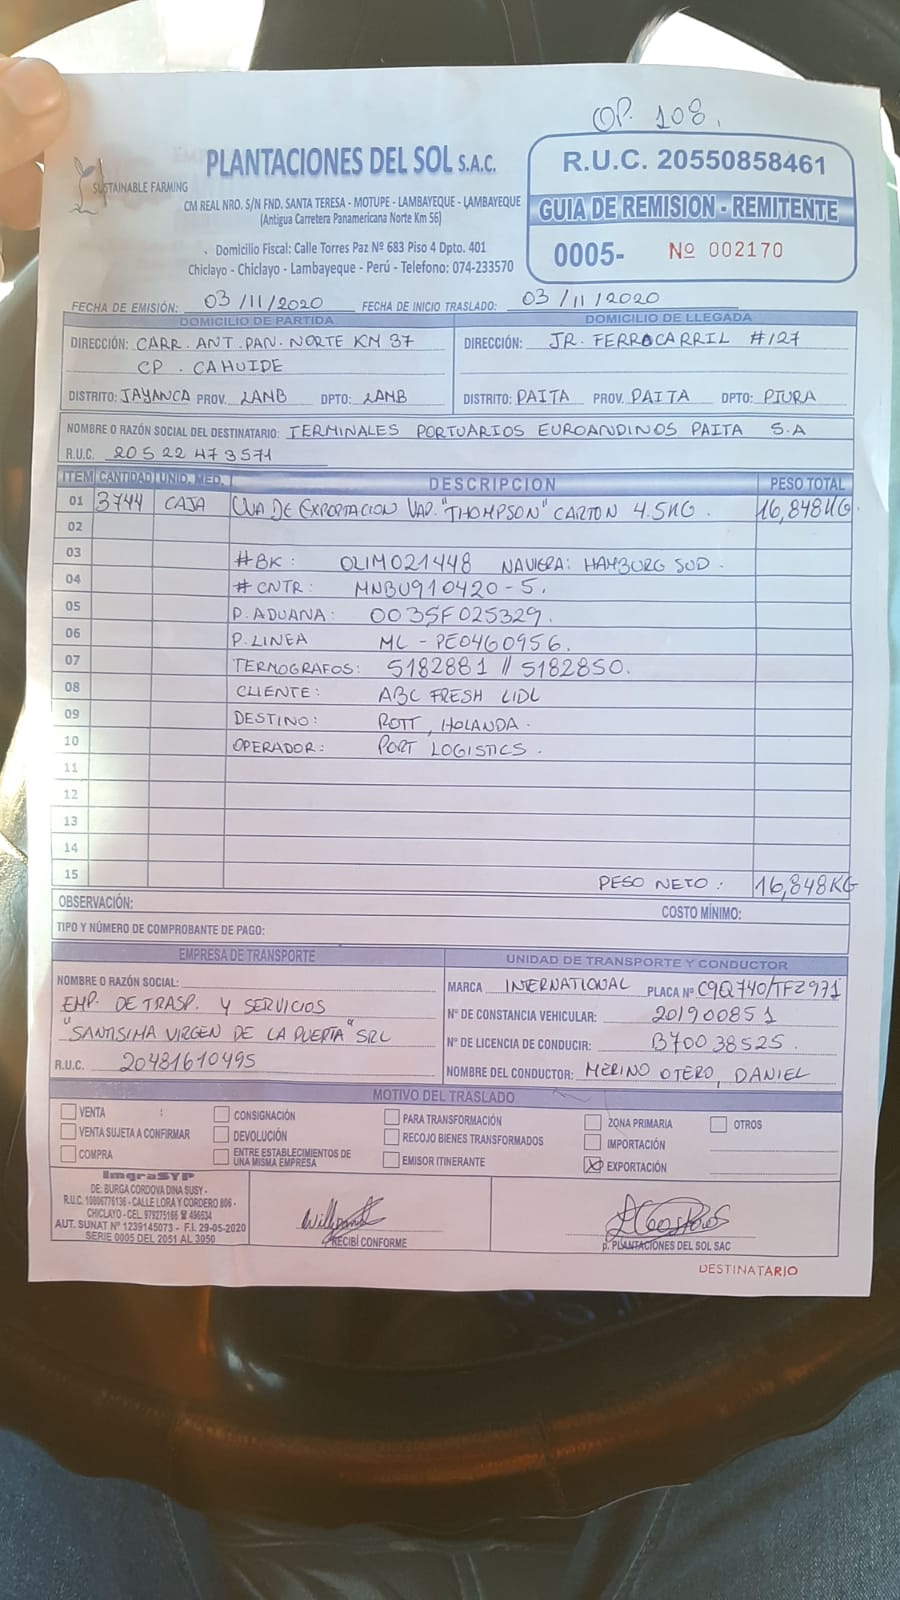 OP. 108.
SUSTAINABLE FARMING
PLANTACIONES DEL SOL S.A.C.
CM REAL NRO. S/N FND. SANTA TERESA - MOTUPE - LAMBAYEQUE - LAMBAYEQUE
(Antigua Carretera Panamericana Norte Km 56)
Domicilio Fiscal: Calle Torres Paz Nº 683 Piso 4 Dpto. 401
Chiclayo - Chiclayo - Lambayeque - Perú - Telefono: 074-233570
R.U.C. 20550858461
GUIA DE REMISION - REMITENTE
0005- Nº 002170
FECHA DE EMISIÓN: 03/11/2020 FECHA DE INICIO TRASLADO: 03/11/2020
DOMICILIO DE PARTIDA
DIRECCIÓN: CARR. ANT. PAN. NORTE KM 37
CP. CAHUIDE
DISTRITO: JAYANCA PROV. LAMB DPTO: LAMB
DOMICILIO DE LLEGADA
DIRECCIÓN: JR. FERROCARRIL #127
DISTRITO: PAITA PROV. PAITA DPTO: PIURA
NOMBRE O RAZÓN SOCIAL DEL DESTINATARIO: TERMINALES PORTUARIOS EUROANDINOS PAITA S.A
R.U.C. 20522473571
ITEM CANTIDAD UNID. MED. DESCRIPCION PESO TOTAL
01 3744 CAJA UVA DE EXPORTACION VAR. "THOMPSON" CARTON 4.5KG. 16,848KG.
02
03 #BK: OLIM021448 NAVIERA: HAMBURG SUD.
04 #CNTR: MNBU910420-5.
05 P. ADUANA: 0035F025329.
06 P. LINEA ML-PE0460956.
07 TERMOGRAFOS: 5182881 // 5182850.
08 CLIENTE: ABC FRESH LIDL
09 DESTINO: ROTT, HOLANDA.
10 OPERADOR: PORT LOGISTICS.
11
12
13
14
15 PESO NETO: 16,848KG
OBSERVACIÓN: COSTO MÍNIMO:
TIPO Y NÚMERO DE COMPROBANTE DE PAGO:
EMPRESA DE TRANSPORTE
NOMBRE O RAZÓN SOCIAL:
EMP. DE TRASP. Y SERVICIOS
"SANTISIMA VIRGEN DE LA PUERTA" SRL
R.U.C. 20481610495
UNIDAD DE TRANSPORTE Y CONDUCTOR
MARCA INTERNATIONAL PLACA Nº C9Q740/TFZ971
N° DE CONSTANCIA VEHICULAR: 201900851
N° DE LICENCIA DE CONDUCIR: B70038525.
NOMBRE DEL CONDUCTOR: MERINO OTERO, DANIEL
MOTIVO DEL TRASLADO
VENTA : CONSIGNACIÓN PARA TRANSFORMACIÓN ZONA PRIMARIA OTROS
VENTA SUJETA A CONFIRMAR DEVOLUCIÓN RECOJO BIENES TRANSFORMADOS IMPORTACIÓN
COMPRA ENTRE ESTABLECIMIENTOS DE EMISOR ITINERANTE X EXPORTACIÓN
UNA MISMA EMPRESA
ImgraSYP
DE: BURGA CORDOVA DINA SUSY -
R.U.C. 10806776136 - CALLE LORA Y CORDERO 806 -
CHICLAYO - CEL. 979275166 ☎ 496534
AUT. SUNAT N° 1239145073 - F.I. 29-05-2020
SERIE 0005 DEL 2051 AL 3050
RECIBÍ CONFORME
p. PLANTACIONES DEL SOL SAC
DESTINATARIO